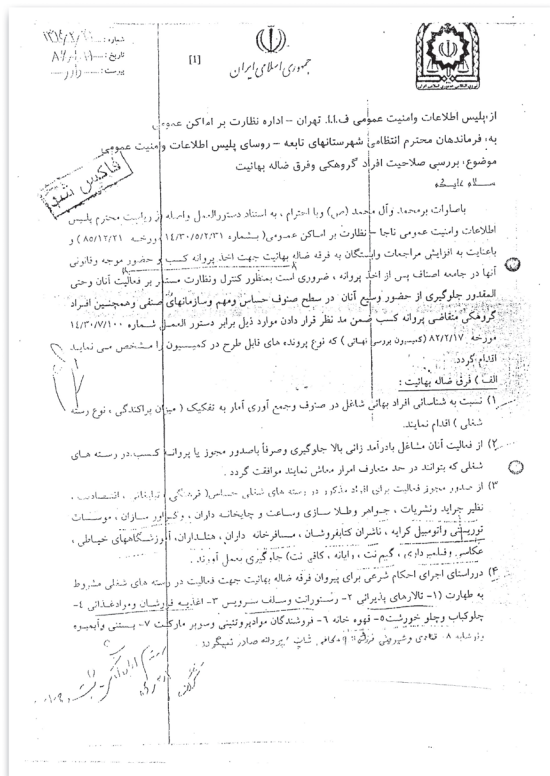 [1]
جمهوری اسلامی ایران
شماره :
تاریخ :
پیوست :
از: پلیس اطلاعات وامنیت عمومی ف.ا.ا. تهران – اداره نظارت بر اماکن عمومی
به: فرماندهان محترم انتظامی شهرستانهای تابعه – روسای پلیس اطلاعات وامنیت عمومی
موضوع: بررسی صلاحیت افراد گروهکی وفرق ضاله بهائیت
سلام علیکم
باصلوات برمحمد وآل محمد (ص) وبا احترام ، به استناد دستورالعمل واصله از ریاست محترم پلیس
اطلاعات وامنیت عمومی ناجا – نظارت بر اماکن عمومی( بشماره ۱۴/۳۰/۵/۲/۳۱ ورخه ۸۵/۱۲/۲۱ ) و
باعنایت به افزایش مراجعات وابستگان به فرقه ضاله بهائیت جهت اخذ پروانه کسب و حضور موجه وقانونی
آنها در جامعه اصناف پس از اخذ پروانه ، ضروری است بمنظور کنترل ونظارت مستمر بر فعالیت آنان وحتی
المقدور جلوگیری از حضور وسیع آنان در سطح صنوف حساس ومهم وسازمانهای صنفی وهمچنین افراد
گروهکی متقاضی پروانه کسب ضمن مد نظر قرار دادن موارد ذیل برابر دستور العمل شماره ۱۴/۳۰/۷/۱۰۰
مورخه ۸۲/۲/۱۷ (کمیسیون بررسی نهائی ) که نوع پرونده های قابل طرح در کمیسیون را مشخص می نمایند
اقدام گردد.
الف ) فرق ضاله بهائیت :
۱) نسبت به شناسائی افراد بهائی شاغل در صنوف وجمع آوری آمار به تفکیک ( میزان پراکندگی ، نوع رسته
شغلی ) اقدام نمایند.
۲) از فعالیت آنان مشاغل بادرآمد زائی بالا جلوگیری وصرفاً باصدور مجوز یا پروانه کسب در رسته های
شغلی که بتوانند در حد متعارف امرار معاش نمایند موافقت گردد .
۳) از صدور مجوز فعالیت برای افراد مذکور در رسته های شغلی حساس( فرهنگی ، تبلیغاتی ، اقتصادی ،
نظیر جراید ونشریات ، جواهر وطلا سازی وساعت و چاپخانه داران ، وگراور سازان ، موسسات
توریستی واتومبیل کرایه ، ناشران کتابفروشان ، مسافرخانه داران ، هتلداران، آموزشگاههای خیاطی ،
عکاسی وفیلمبرداری ، گیم نت ، رایانه ، کافی نت) جلوگیری بعمل آورند .
۴) درراستای اجرای احکام شرعی برای پیروان فرقه ضاله بهائیت جهت فعالیت در رسته های شغلی مشروط
به طهارت (۱- تالارهای پذیرائی ۲- رستورانت وسلف سرویس ۳- اغذیه فروشان وموادغذائی ۴-
چلوکباب وچلو خورشت۵- قهوه خانه ۶- فروشندگان موادپروتئینی وسوپر مارکت ۷- بستنی وآبمیوه
ونوشابه ۸- قنادی وشیرینی فروشی ۹- کافی شاپ ) پروانه صادر نمیگردد .